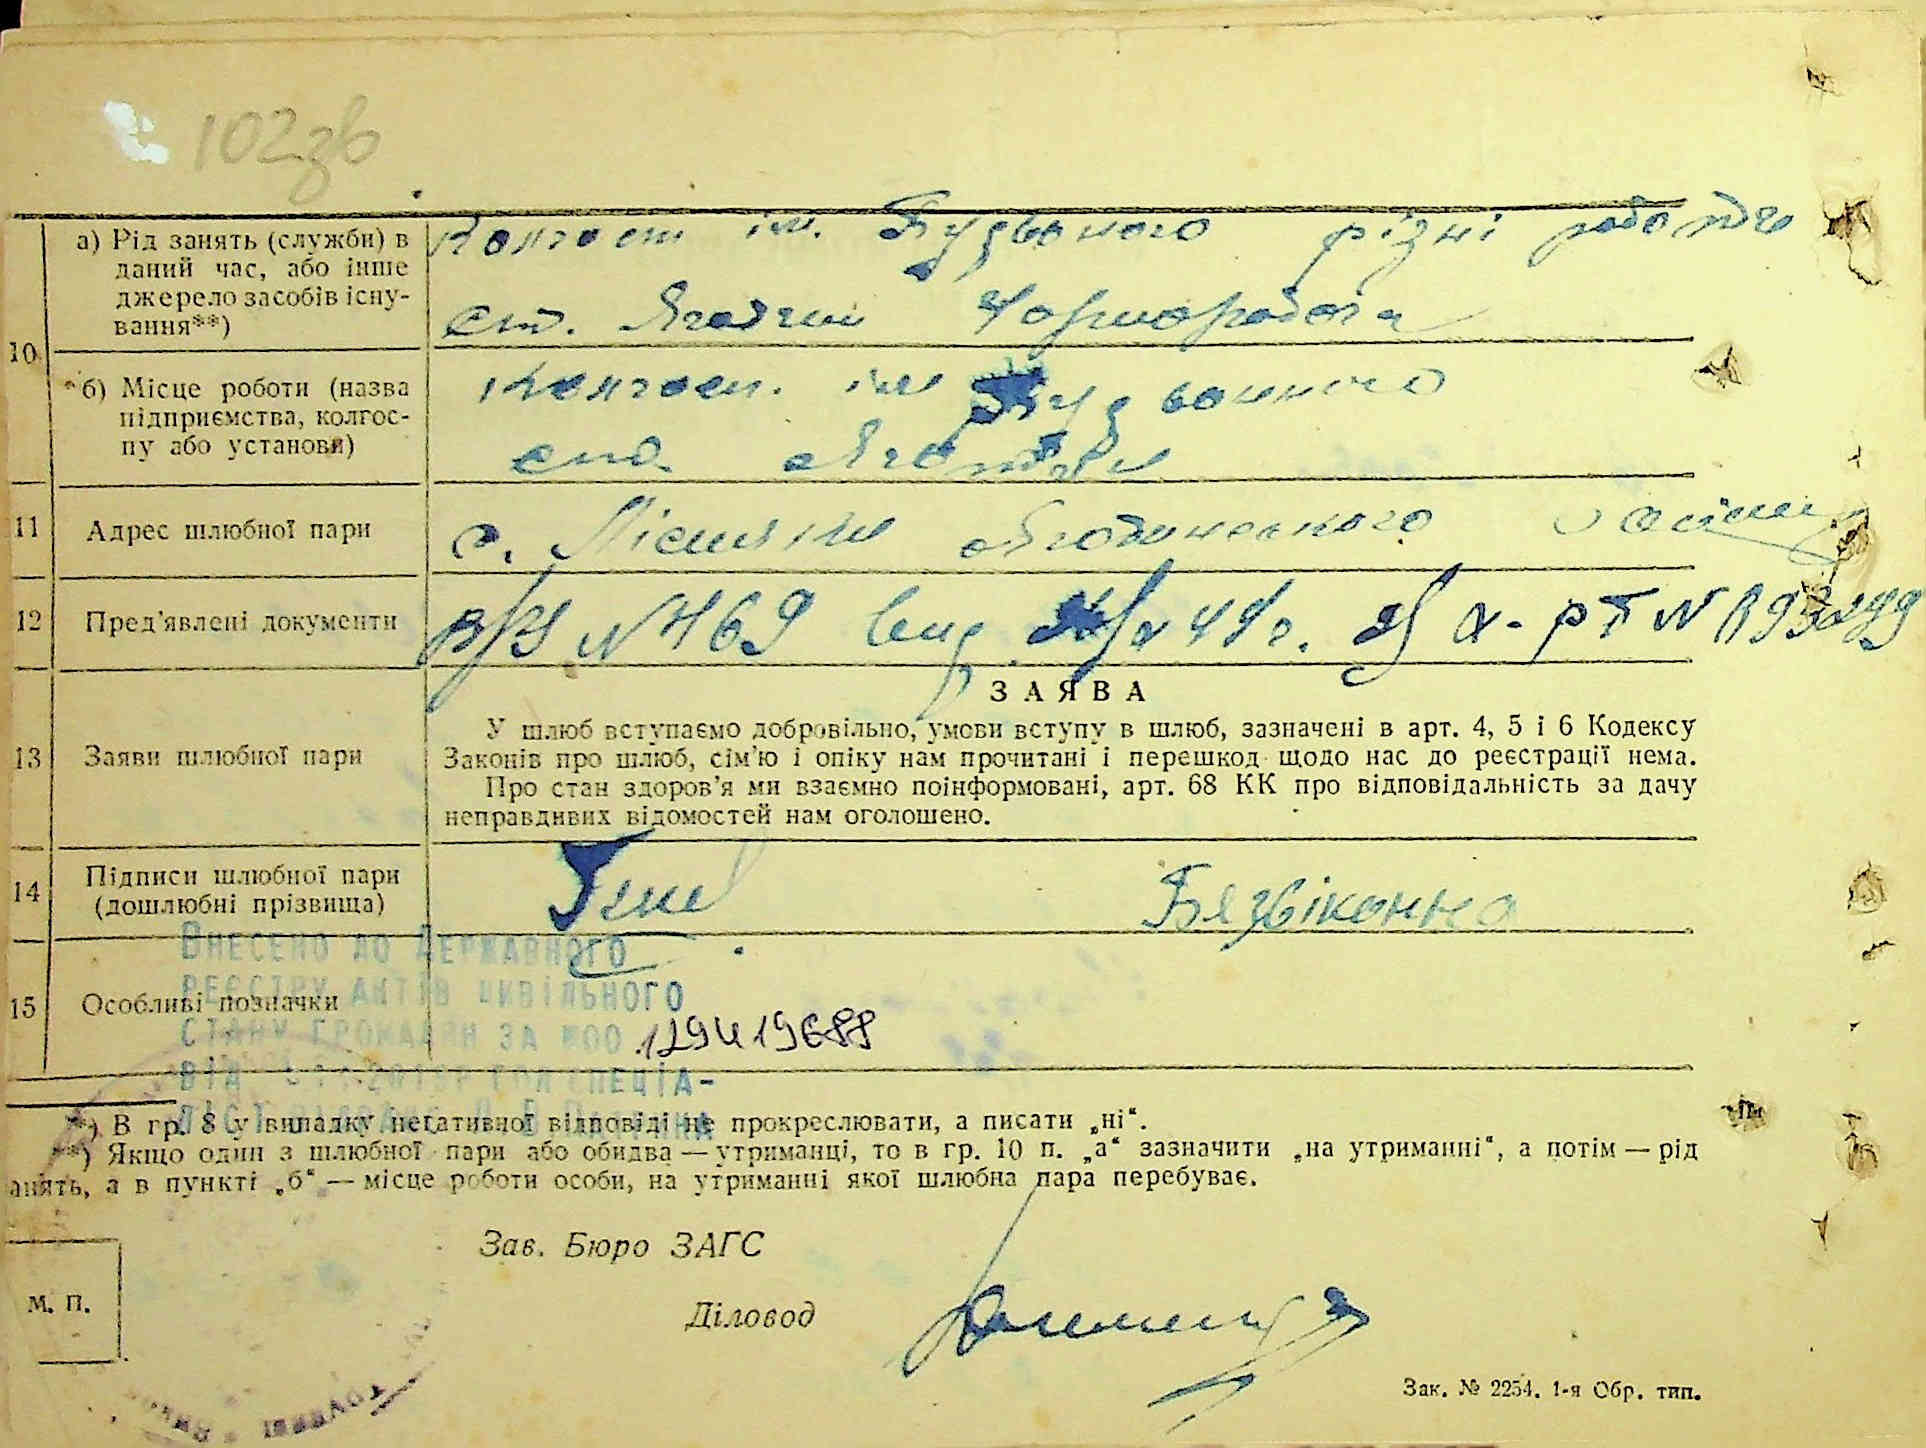 102зв
10
а) Рід занять (служби) в
даний час, або інше
джерело засобів існу-
вання**)
Колгосп ім. Будьоного різні роботи
ст. Яготин Чорноробоча
б) Місце роботи (назва
підприємства, колгос-
пу або установи)
Колгосп. ім Будьонного
ст. Яготин
11 Адрес шлюбної пари
с. Лісняки Яготинського
12 Пред'явлені документи
N 469 вид. 44 г. РТ N
13 Заяви шлюбної пари
ЗАЯВА
У шлюб вступаємо добровільно, умови вступу в шлюб, зазначені в арт. 4, 5 і 6 Кодексу
Законів про шлюб, сім'ю і опіку нам прочитані і перешкод щодо нас до реєстрації нема.
Про стан здоров'я ми взаємно поінформовані, арт. 68 КК про відповідальність за дачу
неправдивих відомостей нам оголошено.
14 Підписи шлюбної пари
(дошлюбні прізвища)
Безвіконна
15 Особливі позначки
Внесено до Державного
реєстру актів цивільного
стану громадян за №00 129419688
від спеціа-
*) В гр. 8 у випадку негативної відповіді не прокреслювати, а писати „ні“.
**) Якщо один з шлюбної пари або обидва — утриманці, то в гр. 10 п. „а“ зазначити „на утриманні“, а потім — рід
анять, а в пункті „б“ — місце роботи особи, на утриманні якої шлюбна пара перебуває.
Зав. Бюро ЗАГС
М. П.
Діловод
Зак. № 2254. 1-я Обр. тип.